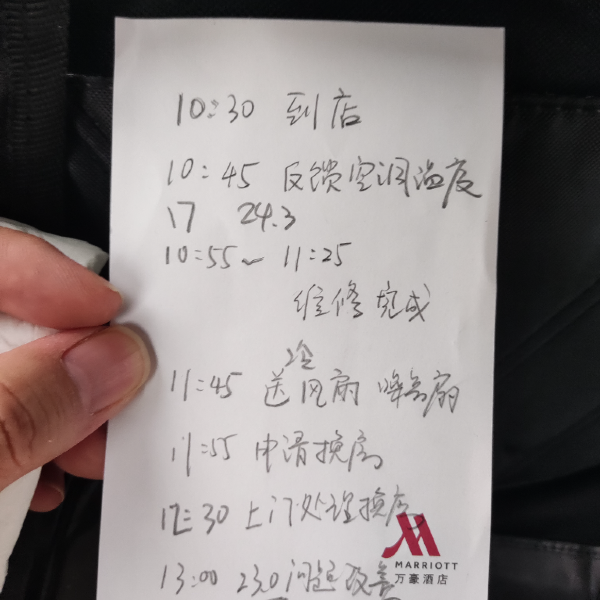 10:30 到店
10:45 反锁空调温度
17 24.3
10:55~11:25
维修完成
冷
11:45 送风扇
11:55 申请换房
12:30 上门处理换房
13:00 23.0 问题改善
MARRIOTT
万豪酒店